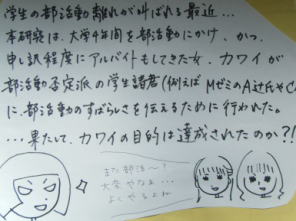 学生の部活動離れが叫ばれる最近…
本研究は、大学4年間を部活動にかけ、かつ、
申し訳程度にアルバイトもしてきた女、カワイが
部活動否定派の学生諸君(例えばMゼミのA辻氏や
に、部活動のすばらしさを伝えるために行われた。
…果たして、カワイの目的は達成されたのか?!
また部活〜?
大変やなぁ…
よくやるよね